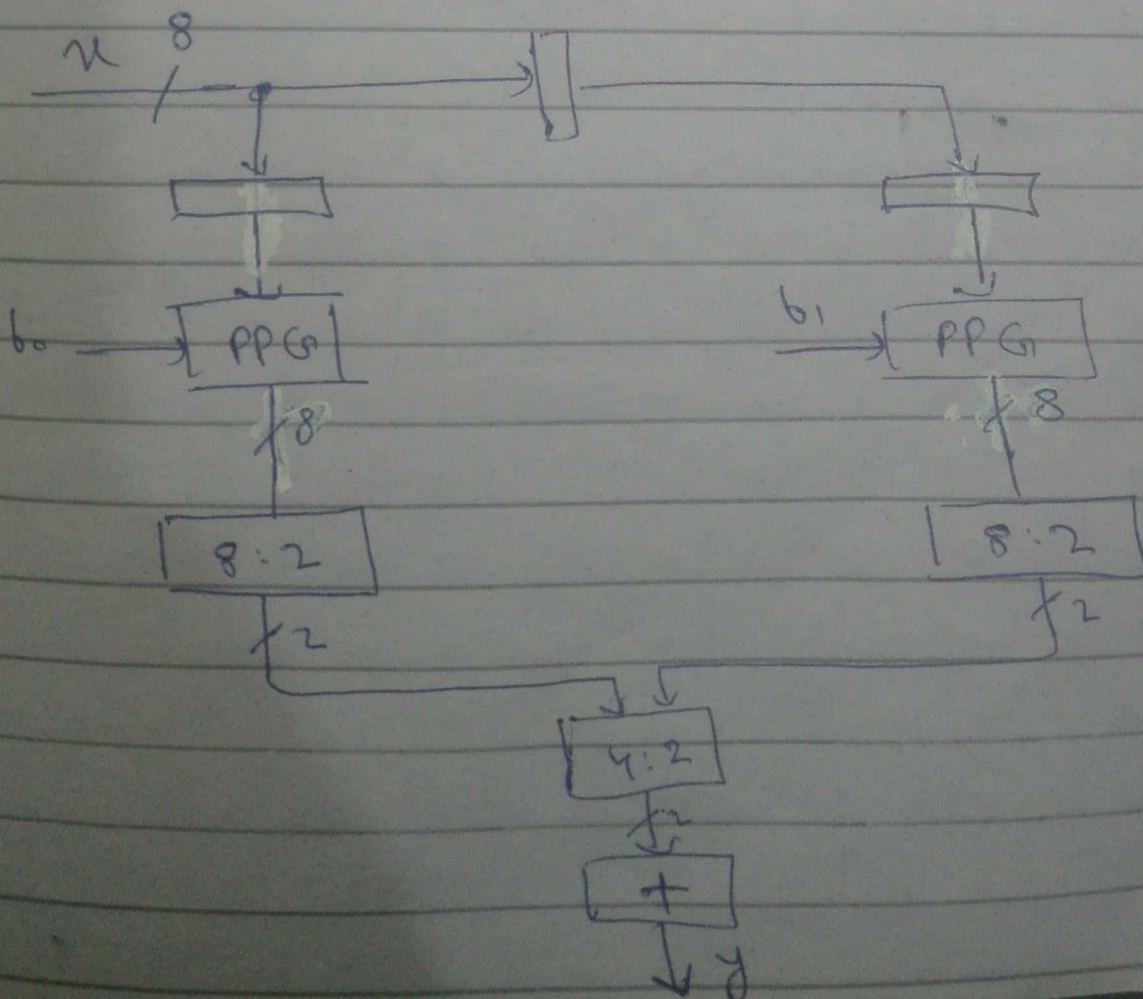 x 8
b₀ PPG b₁ PPG
8 8
8:2 8:2
2 2
4:2
2
+
y